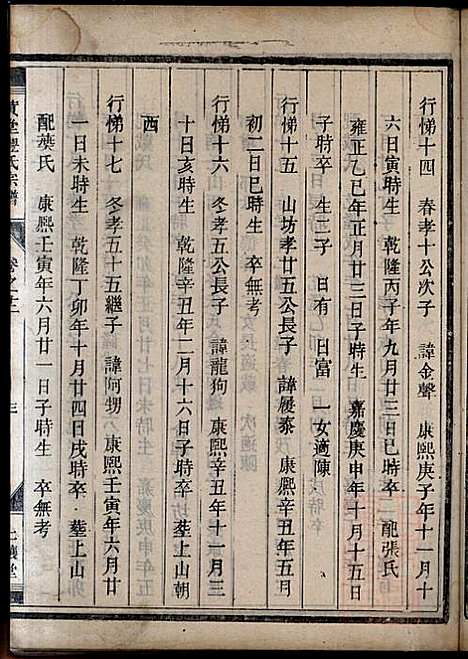 行悌十四 春孝十公次子 諱金聲 康熙庚子年十一月十
六日寅時生 乾隆丙子年九月廿三日巳時卒 配張氏
雍正乙巳年正月廿三日子時生 嘉慶庚申年十月十五日
子時卒 生二子 日有 日富 一女適陳
行悌十五 山坊孝廿五公長子 諱履泰 康熙辛丑年五月
初二日巳時生 卒無考
行悌十六 冬孝五公長子 諱龍狗 康熙辛丑年十一月三
十日亥時生 乾隆辛丑年二月十六日子時卒 塟上山朝
西
行悌十七 冬孝五十五繼子 諱阿甥 康熙壬寅年六月廿
一日未時生 乾隆丁卯年十月廿四日戌時卒 塟上山
配葉氏 康熙壬寅年六月廿一日子時生 卒無考
氏宗譜